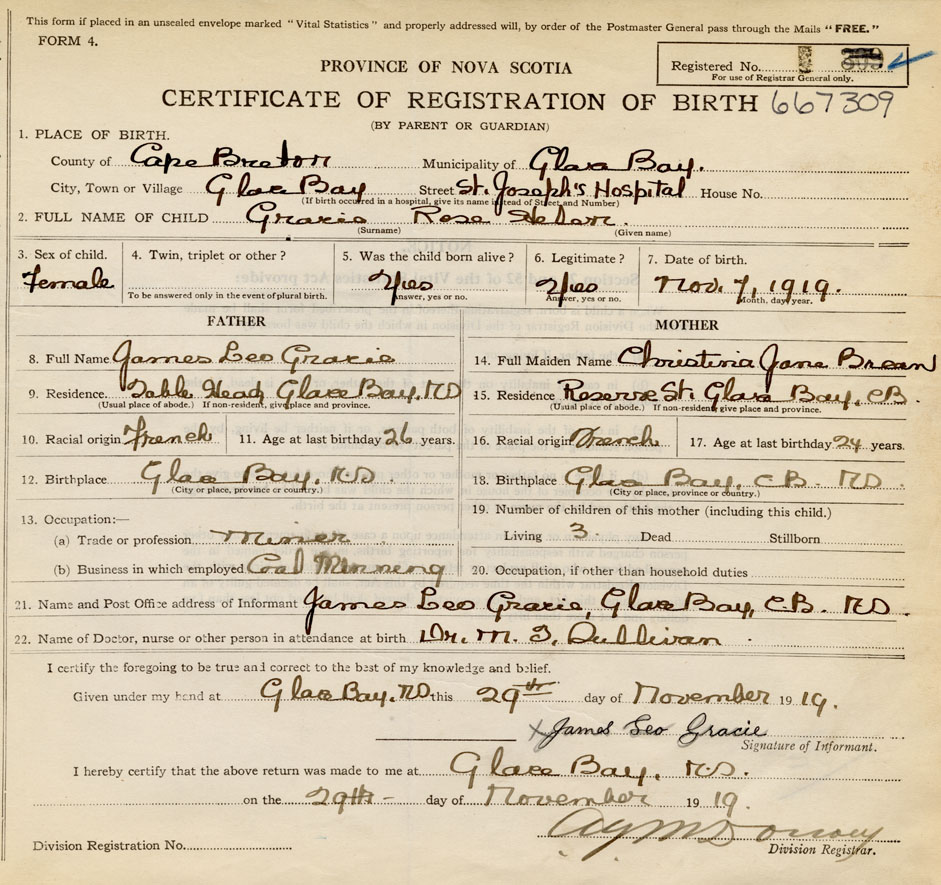 This form if placed in an unsealed envelope marked "Vital Statistics" and properly addressed will, by order of the Postmaster General pass through the Mails "FREE."
FORM 4.
Registered No.
For use of Registrar General only.
PROVINCE OF NOVA SCOTIA
CERTIFICATE OF REGISTRATION OF BIRTH 667309
(BY PARENT OR GUARDIAN)
1. PLACE OF BIRTH.
County of Cape Breton Municipality of Glace Bay.
City, Town or Village Glace Bay Street St. Joseph's Hospital House No.
(If birth occurred in a hospital, give its name instead of Street and Number)
2. FULL NAME OF CHILD Gracie Rose Helen.
(Surname) (Given name)
3. Sex of child. 4. Twin, triplet or other? 5. Was the child born alive? 6. Legitimate? 7. Date of birth.
Female Yes Yes Nov. 7, 1919.
To be answered only in the event of plural birth. Answer, yes or no. Answer, yes or no. Month, day, year.
FATHER MOTHER
8. Full Name James Leo Gracie 14. Full Maiden Name Christina Jane Brean
9. Residence. Table Head, Glace Bay, N.S. 15. Residence Reserve St. Glace Bay, C.B.
(Usual place of abode.) If non-resident, give place and province. (Usual place of abode.) If non-resident, give place and province.
10. Racial origin French 11. Age at last birthday 26 years. 16. Racial origin French 17. Age at last birthday 24 years.
12. Birthplace Glace Bay, N.S. 18. Birthplace Glace Bay, C.B. N.S.
(City or place, province or country.) (City or place, province or country.)
13. Occupation:— 19. Number of children of this mother (including this child.)
(a) Trade or profession Miner Living 3. Dead Stillborn
(b) Business in which employed Coal Minning 20. Occupation, if other than household duties
21. Name and Post Office address of Informant James Leo Gracie, Glace Bay, C.B. N.S.
22. Name of Doctor, nurse or other person in attendance at birth Dr. M. T. Sullivan
I certify the foregoing to be true and correct to the best of my knowledge and belief.
Given under my hand at Glace Bay, N.S. this 29th day of November 1919.
X James Leo Gracie
Signature of Informant.
I hereby certify that the above return was made to me at Glace Bay, N.S.
on the 29th - day of November 1919.
Division Registration No. Division Registrar.